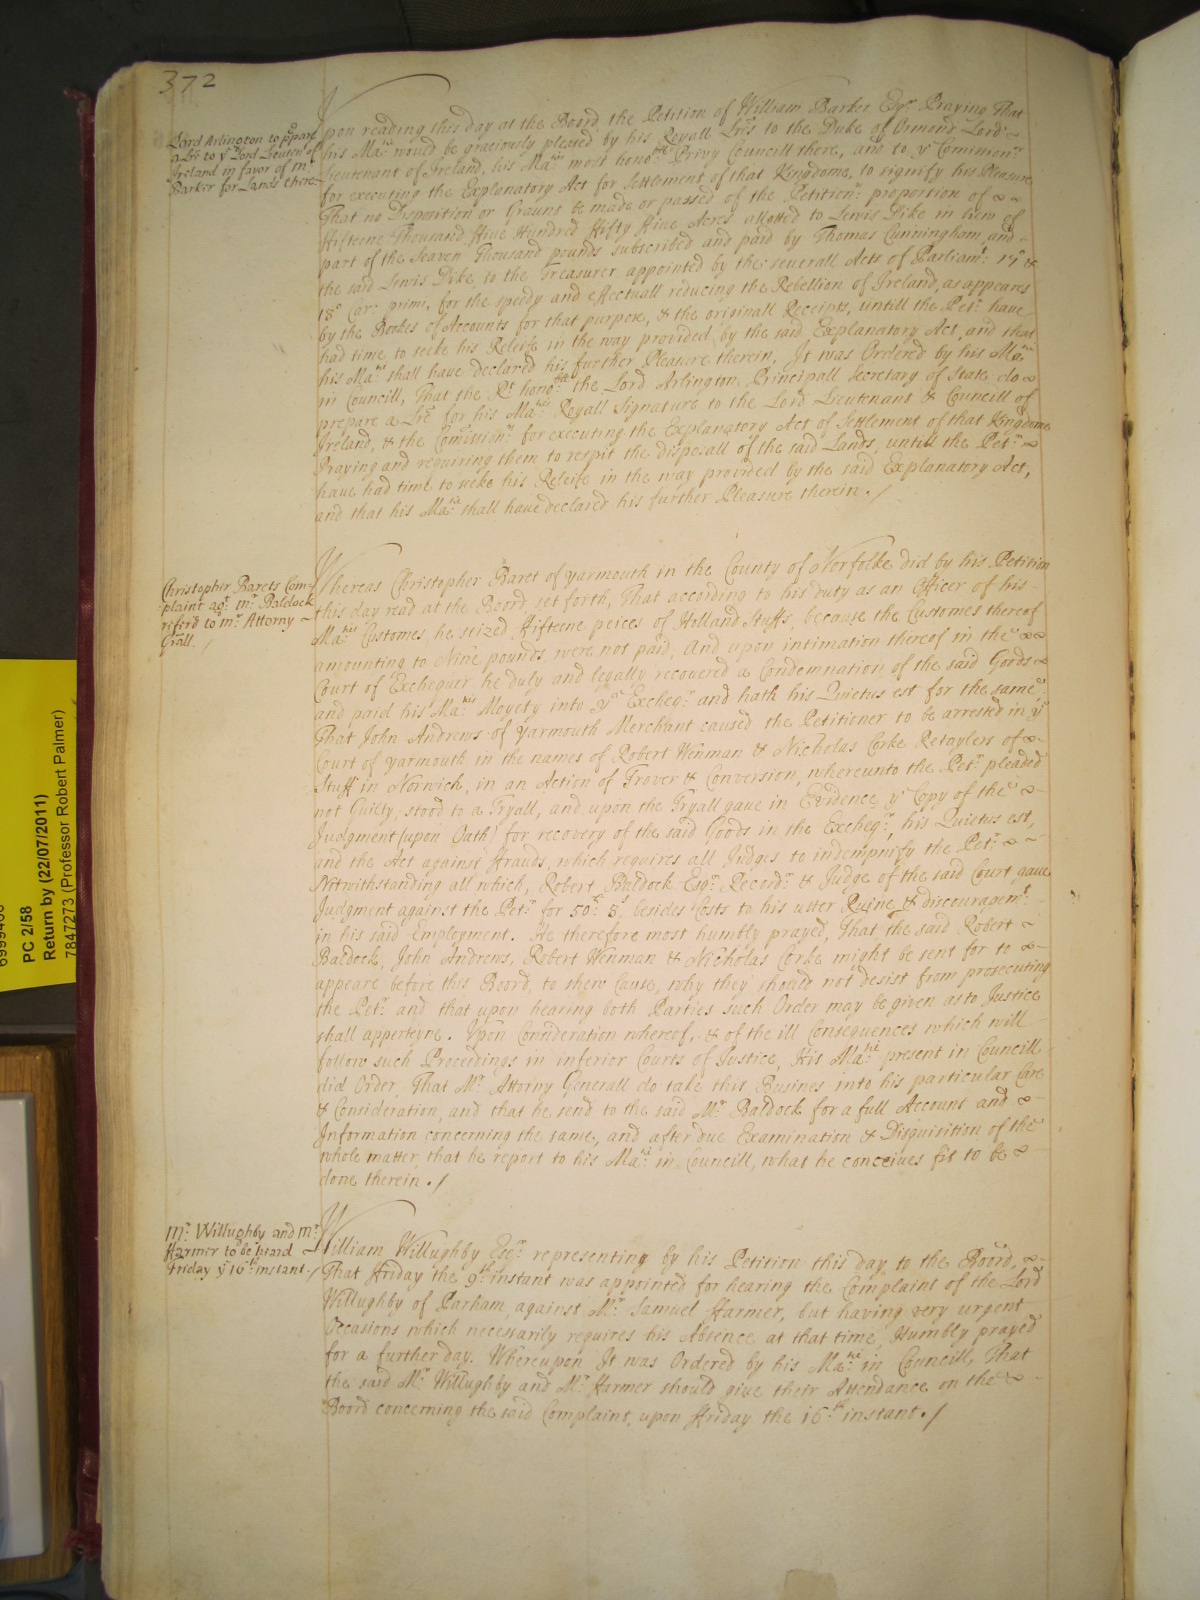 372
Lord Arlington to p̱pare
a Lr̃e to yͤ Lord Lieuten.ͭ of
Ireland in favor of mͬ
Barker for Lands there
Upon reading this day at the Board, the Petition of William Barker Esqͬ Praying That
his Ma:ͭͥͤ would be graciously pleased by his Royall Lr̃es to the Duke of Ormond Lord ~
Lieutenant of Ireland, his Ma:ͭͥͤˢ most hono:ᵇˡᵉ Privy Councill there, and to yͤ Com̃ission:ͬˢ
for executing the Explanatory Act for Settlement of that Kingdome, to signify his Pleasure
That no Disposition or Graunt be made or passed of the Petition:ͬˢ proportion of ~
Fifteene Thousand Five Hundred Fifty Five Acres allotted to Lewis Dike in liew of
part of the Seaven Thousand pounds subscribed and paid by Thomas Cunningham, and -
the said Lewis Dike, to the Treasurer appointed by the severall Acts of Parliam:ͭ 17º &
18º Car: primi, for the speedy and effectuall reducing the Rebellion of Ireland, as appeares
by the Bookes of Accounts for that purpose, & the originall Receipts, untill the Pet:ͬ have
had time to seeke his Releife in the way provided by the said Explanatory Act, and that
his Ma:ͭͥͤ shall have declared his further Pleasure therein. It was Ordered by his Ma:ͭͥͤ
in Councill, That the Rͭ hono:ᵇˡᵉ the Lord Arlington Principall Secretary of State do ~
prepare a Lr̃e for his Ma:ͭͥͤˢ Royall Signature to the Lord Lieutenant & Councill of
Ireland, & the Com̃ission:ͬˢ for executing the Explanatory Act of Settlement of that Kingdome
Praying and requiring them to respit the disposall of the said Lands, untill the Pet:ͬ ~
have had time to seeke his Releife in the way provided by the said Explanatory Act,
and that his Ma:ͭͥͤ shall have declared his further Pleasure therein. /
Christopher Barets Com-
plaint ag:ͭ mͬ Baldock
referd to mͬ Attorny ~
Gr̃all. /
Whereas Christopher Baret of Yarmouth in the County of Norfolke did by his Petition
this day read at the Board set forth, That according to his duty as an Officer of his -
Ma:ͭͥͤˢ Customes, he seized Fifteene peices of Holland Stuffs, because the Customes thereof
amounting to Nine pounds were not paid, And upon intimation thereof in the ~
Court of Exchequer he duly and legally recovered a Condemnation of the said Goods ~
and paid his Ma:ͭͥͤˢ Moyety into yͤ Excheq:ͬ and hath his Quietus est for the same.
That John Andrews of Yarmouth Merchant caused the Petitioner to be arrested in yͤ
Court of Yarmouth in the names of Robert Wenman & Nicholas Corke Retaylers of ~
Stuff in Norwich, in an Action of Trover & Conversion, whereunto the Pet:ͬ pleaded
not Guilty, stood to a Tryall, and upon the Tryall gave in Evidence yͤ Copy of the ~
Judgment (upon Oath) for recovery of the said Goods in the Excheq:ͬ, his Quietus est,
and the Act against Frauds, which requires all Judges to indempnify the Pet:ͬ ~
Notwithstanding all which, Robert Baldock Esq:ͬ Record:ͬ & Judge of the said Court gave
Judgment against the Pet:ͬ for 50:ˡ 5:ˢ besides Costs to his utter Ruine & discouragem:ͭ
in his said Employment. He therefore most humbly prayed, That the said Robert ~
Baldock, John Andrews, Robert Wenman & Nicholas Corke might be sent for to ~
appeare before this Board, to shew Cause, why they should not desist from prosecuting
the Pet:ͬ and that upon hearing both Parties such Order may be given as to Justice
shall apperteyne. Upon Consideration whereof, & of the ill Consequences which will -
follow such Proceedings in inferior Courts of Justice, His Ma:ͭͥͤ present in Councill
did Order, That Mͬ Attorny Generall do take this Busines into his particular Care
& Consideration, and that he send to the said Mͬ Baldock for a full Account and ~
Information concerning the same, and after due Examination & Disquisition of the
whole matter, that he report to his Ma:ͭͥͤ in Councill, what he conceives fit to be ~
done therein. /
Mͬ Willughby and Mͬ
Harmer to be heard ~
Friday yͤ 16ͭͪ instant. /
William Willughby Esqͬ representing by his Petition this day to the Board, ~
That Friday the 9ͭͪ instant was appointed for hearing the Complaint of the Lord
Willughby of Parham, against Mͬ Samuel Harmer, but having very urgent
Occasions which necessarily requires his Absence at that time, Humbly prayed
for a further day. Whereupon It was Ordered by his Ma:ͭͥͤ in Councill, That
the said Mͬ Willughby and Mͬ Harmer should give their Attendance on the ~
Board concerning the said Complaint, upon Friday the 16:ͭͪ instant. /
PC 2/58
Return by (22/07/2011)
7847273 (Professor Robert Palmer)